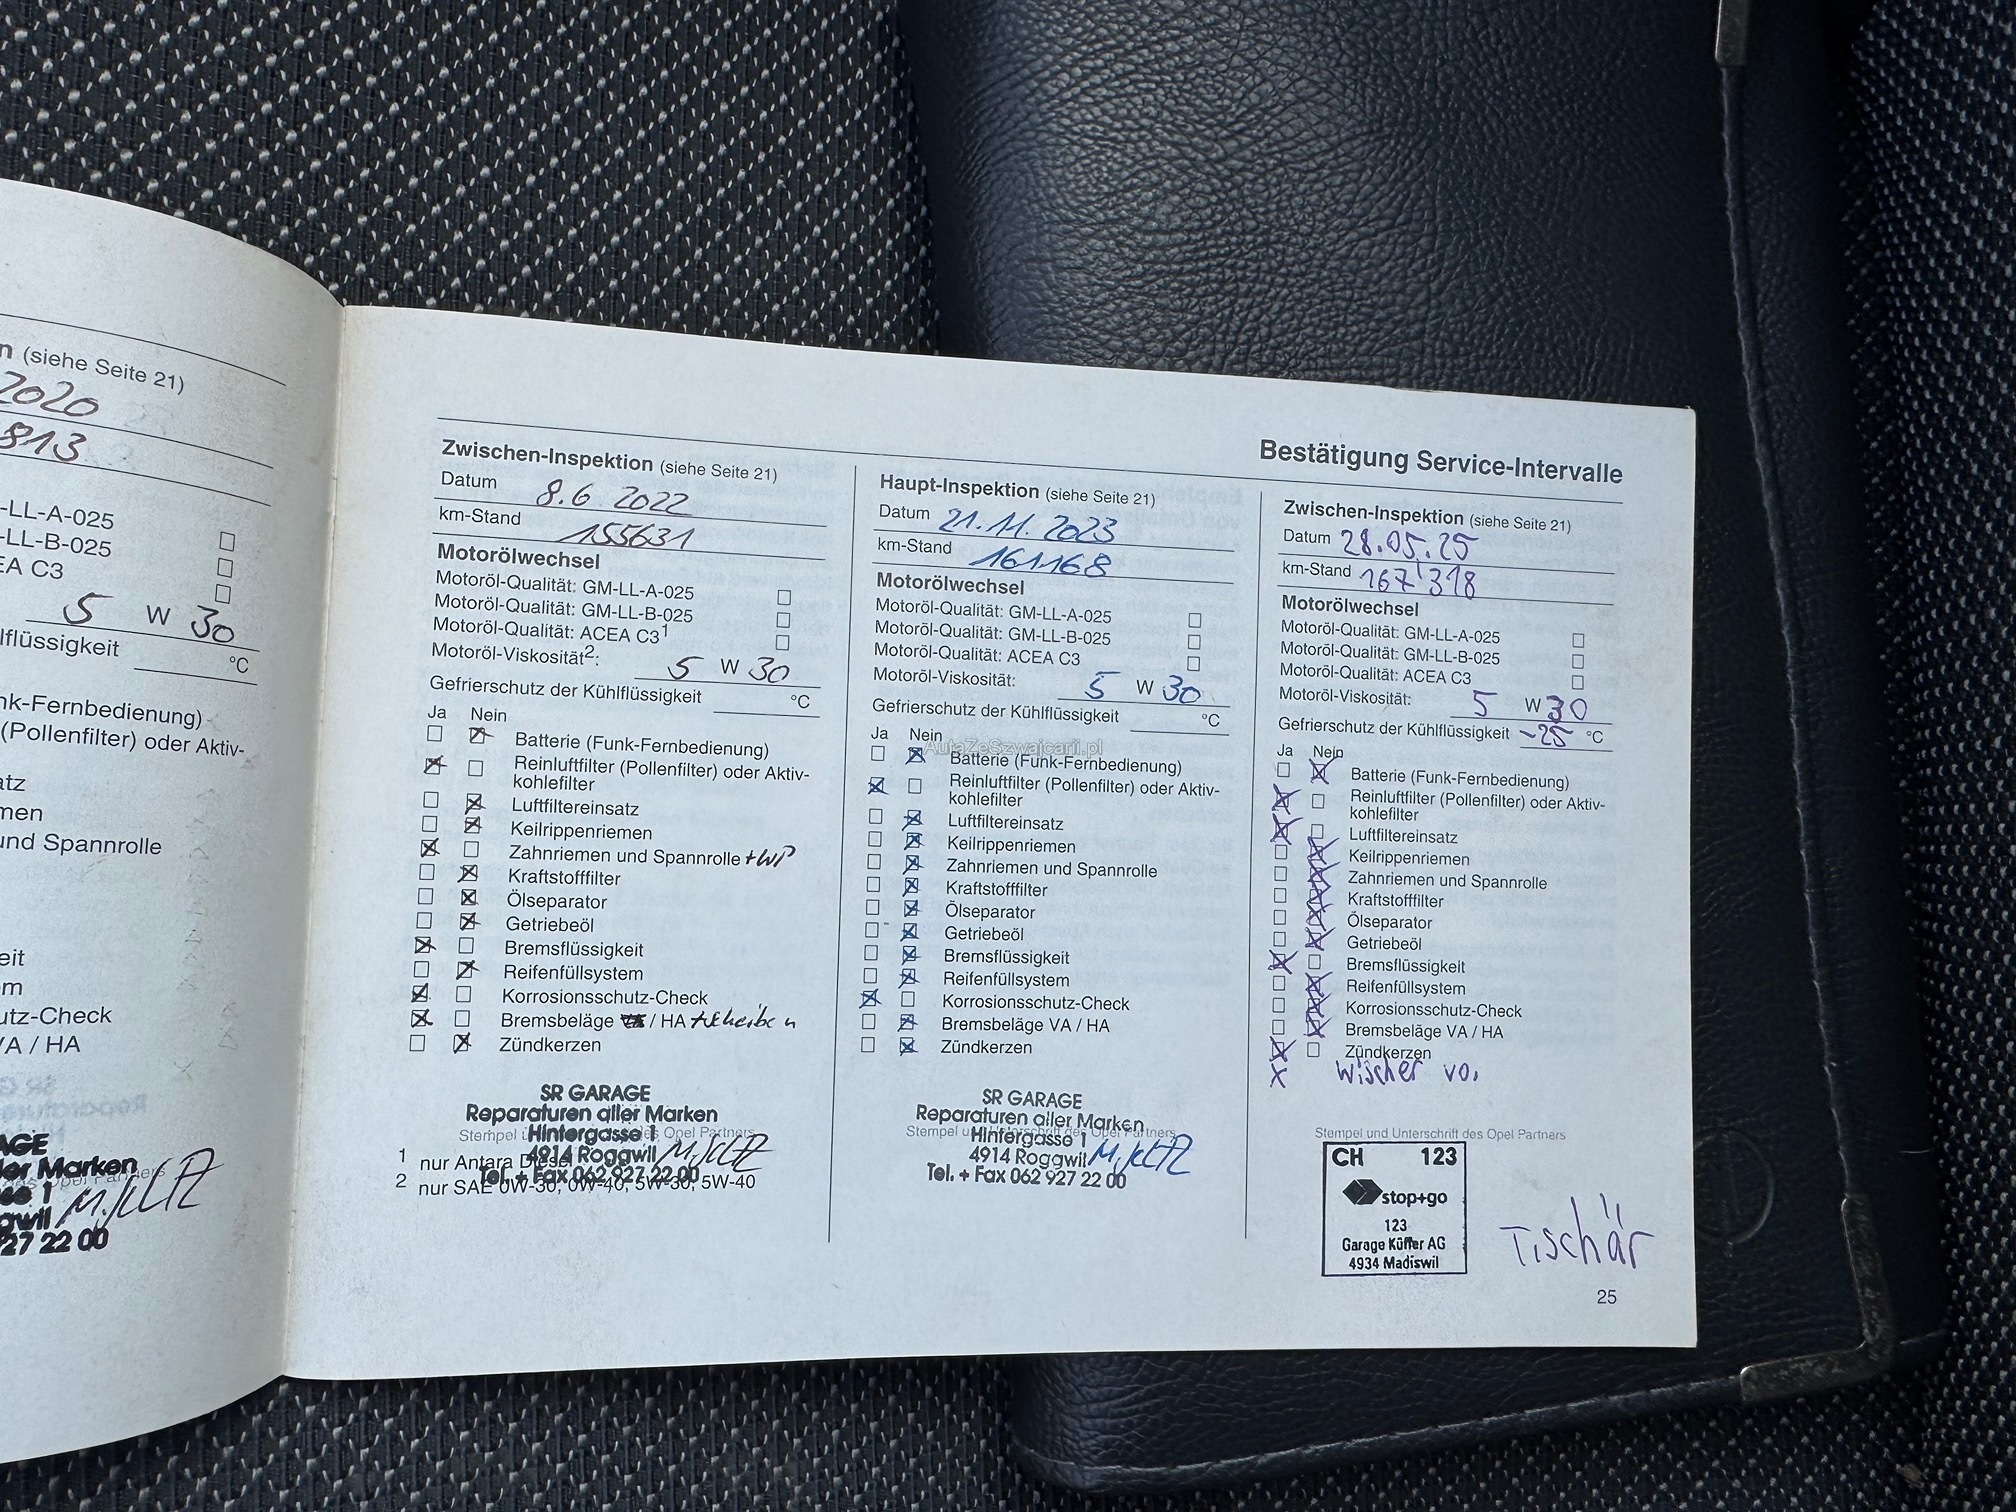 n (siehe Seite 21)
2020
813
-LL-A-025
-LL-B-025
EA C3
5 W 30
lflüssigkeit °C
nk-Fernbedienung)
(Pollenfilter) oder Aktiv-
atz
men
und Spannrolle
eit
m
utz-Check
VA / HA
AGE
ler Marken
sse 1
ggwil
27 22 00
Bestätigung Service-Intervalle
Zwischen-Inspektion (siehe Seite 21)
Datum 8.6 2022
km-Stand 155631
Motorölwechsel
Motoröl-Qualität: GM-LL-A-025
Motoröl-Qualität: GM-LL-B-025
Motoröl-Qualität: ACEA C3¹
Motoröl-Viskosität²: 5 W 30
Gefrierschutz der Kühlflüssigkeit °C
Ja Nein
Batterie (Funk-Fernbedienung)
Reinluftfilter (Pollenfilter) oder Aktiv-
kohlefilter
Luftfiltereinsatz
Keilrippenriemen
Zahnriemen und Spannrolle + WP
Kraftstofffilter
Ölseparator
Getriebeöl
Bremsflüssigkeit
Reifenfüllsystem
Korrosionsschutz-Check
Bremsbeläge VA / HA + scheiben
Zündkerzen
SR GARAGE
Reparaturen aller Marken
Hintergasse 1
4914 Roggwil
Tel. + Fax 062 927 22 00
1 nur Antara Diesel
2 nur SAE 0W-30, 0W-40, 5W-30, 5W-40
Haupt-Inspektion (siehe Seite 21)
Datum 21.11.2023
km-Stand 161168
Motorölwechsel
Motoröl-Qualität: GM-LL-A-025
Motoröl-Qualität: GM-LL-B-025
Motoröl-Qualität: ACEA C3
Motoröl-Viskosität: 5 W 30
Gefrierschutz der Kühlflüssigkeit °C
Ja Nein
AutaZeSzwajcarii.pl
Batterie (Funk-Fernbedienung)
Reinluftfilter (Pollenfilter) oder Aktiv-
kohlefilter
Luftfiltereinsatz
Keilrippenriemen
Zahnriemen und Spannrolle
Kraftstofffilter
Ölseparator
Getriebeöl
Bremsflüssigkeit
Reifenfüllsystem
Korrosionsschutz-Check
Bremsbeläge VA / HA
Zündkerzen
SR GARAGE
Reparaturen aller Marken
Stempel und Unterschrift des Opel Partners
Hintergasse 1
4914 Roggwil
Tel. + Fax 062 927 22 00
Zwischen-Inspektion (siehe Seite 21)
Datum 28.05.25
km-Stand 167'318
Motorölwechsel
Motoröl-Qualität: GM-LL-A-025
Motoröl-Qualität: GM-LL-B-025
Motoröl-Qualität: ACEA C3
Motoröl-Viskosität: 5 W 30
Gefrierschutz der Kühlflüssigkeit -25 °C
Ja Nein
Batterie (Funk-Fernbedienung)
Reinluftfilter (Pollenfilter) oder Aktiv-
kohlefilter
Luftfiltereinsatz
Keilrippenriemen
Zahnriemen und Spannrolle
Kraftstofffilter
Ölseparator
Getriebeöl
Bremsflüssigkeit
Reifenfüllsystem
Korrosionsschutz-Check
Bremsbeläge VA / HA
Zündkerzen
x Wischer vo.
Stempel und Unterschrift des Opel Partners
CH 123
stop+go
123
Garage Küffer AG
4934 Madiswil
Tischär
25